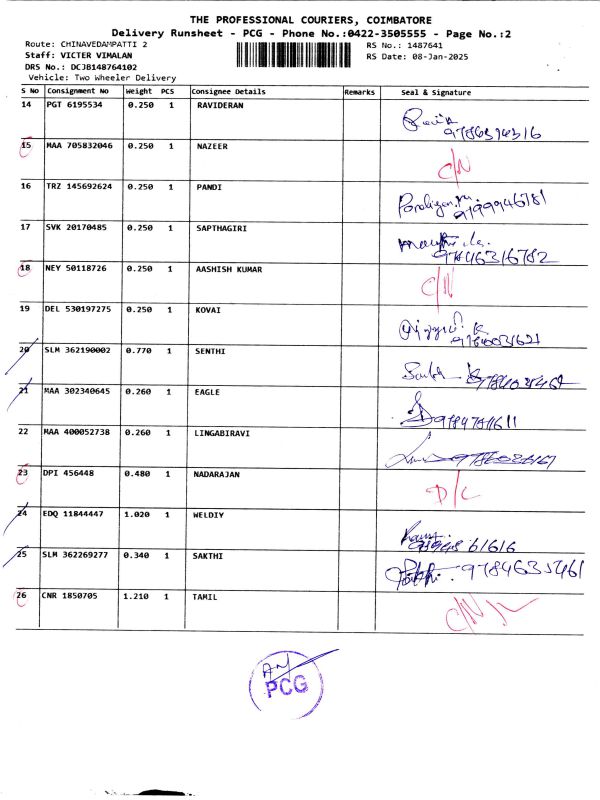 THE PROFESSIONAL COURIERS, COIMBATORE
Delivery Runsheet - PCG - Phone No.:0422-3505555 - Page No.:2
Route: CHINAVEDAMPATTI 2
RS No.: 1487641
Staff: VICTER VIMALAN
RS Date: 08-Jan-2025
DRS No.: DCJB148764102
Vehicle: Two Wheeler Delivery
S No Consignment No Weight PCS Consignee Details Remarks Seal & Signature
14 PGT 6195534 0.250 1 RAVIDERAN
15 MAA 705832046 0.250 1 NAZEER C/N
16 TRZ 145692624 0.250 1 PANDI
17 SVK 20170485 0.250 1 SAPTHAGIRI
18 NEY 50118726 0.250 1 AASHISH KUMAR C/N
19 DEL 530197275 0.250 1 KOVAI
20 SLM 362190002 0.770 1 SENTHI
21 MAA 302340645 0.260 1 EAGLE
22 MAA 400052738 0.260 1 LINGABIRAVI
23 DPI 456448 0.480 1 NADARAJAN D/L
24 EDQ 11844447 1.020 1 WELDIY
25 SLM 362269277 0.340 1 SAKTHI
26 CNR 1850705 1.210 1 TAMIL C/N
PCG